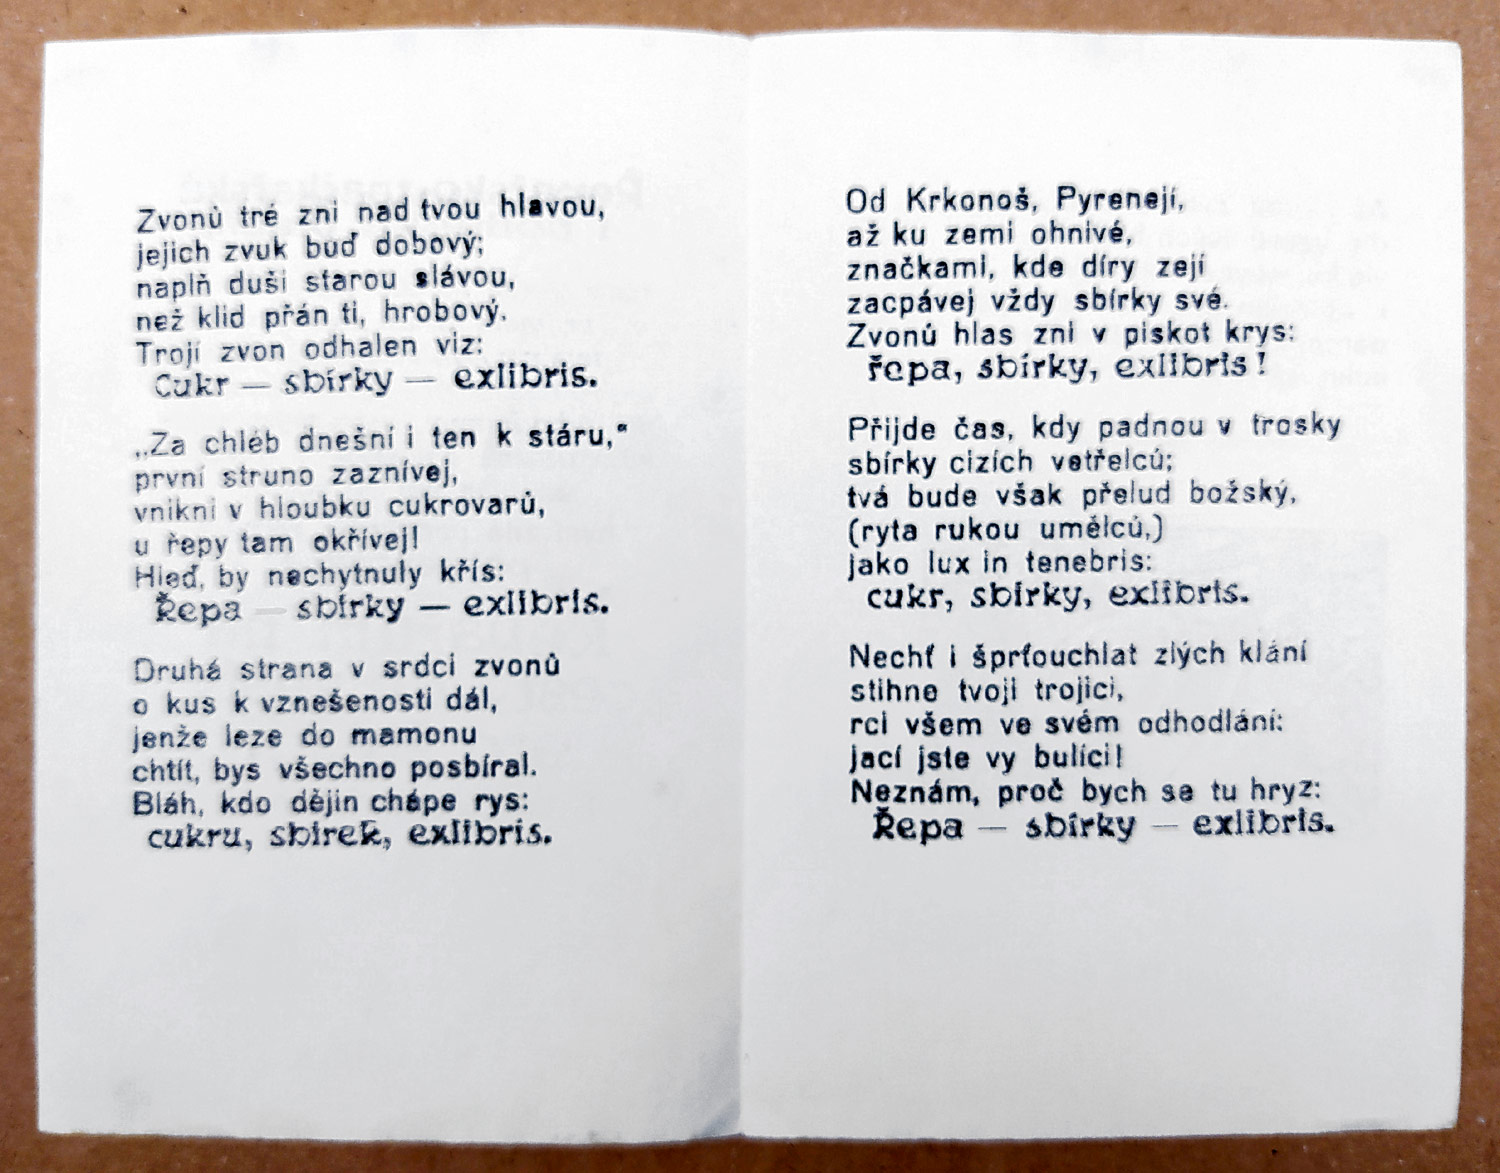 Zvonů tré zni nad tvou hlavou,
jejich zvuk buď dobový;
naplň duši starou slávou,
než klid přán ti, hrobový.
Trojí zvon odhalen viz:
Cukr — sbírky — exlibris.
„Za chléb dnešní i ten k stáru,"
první struno zaznívej,
vnikni v hloubku cukrovarů,
u řepy tam okřívej!
Hleď, by nechytnuly křís:
Řepa — sbírky — exlibris.
Druhá strana v srdci zvonů
o kus k vznešenosti dál,
jenže leze do mamonu
chtít, bys všechno posbíral.
Bláh, kdo dějin chápe rys:
cukru, sbírek, exlibris.
Od Krkonoš, Pyrenejí,
až ku zemi ohnivé,
značkami, kde díry zejí
zacpávej vždy sbírky své.
Zvonů hlas zni v piskot krys:
řepa, sbírky, exlibris!
Přijde čas, kdy padnou v trosky
sbírky cizích vetřelců;
tvá bude však přelud božský,
(ryta rukou umělců,)
jako lux in tenebris:
cukr, sbírky, exlibris.
Nechť i šprťouchlat zlých klání
stihne tvoji trojici,
rci všem ve svém odhodlání:
jací jste vy bulíci!
Neznám, proč bych se tu hryz:
Řepa — sbírky — exlibris.